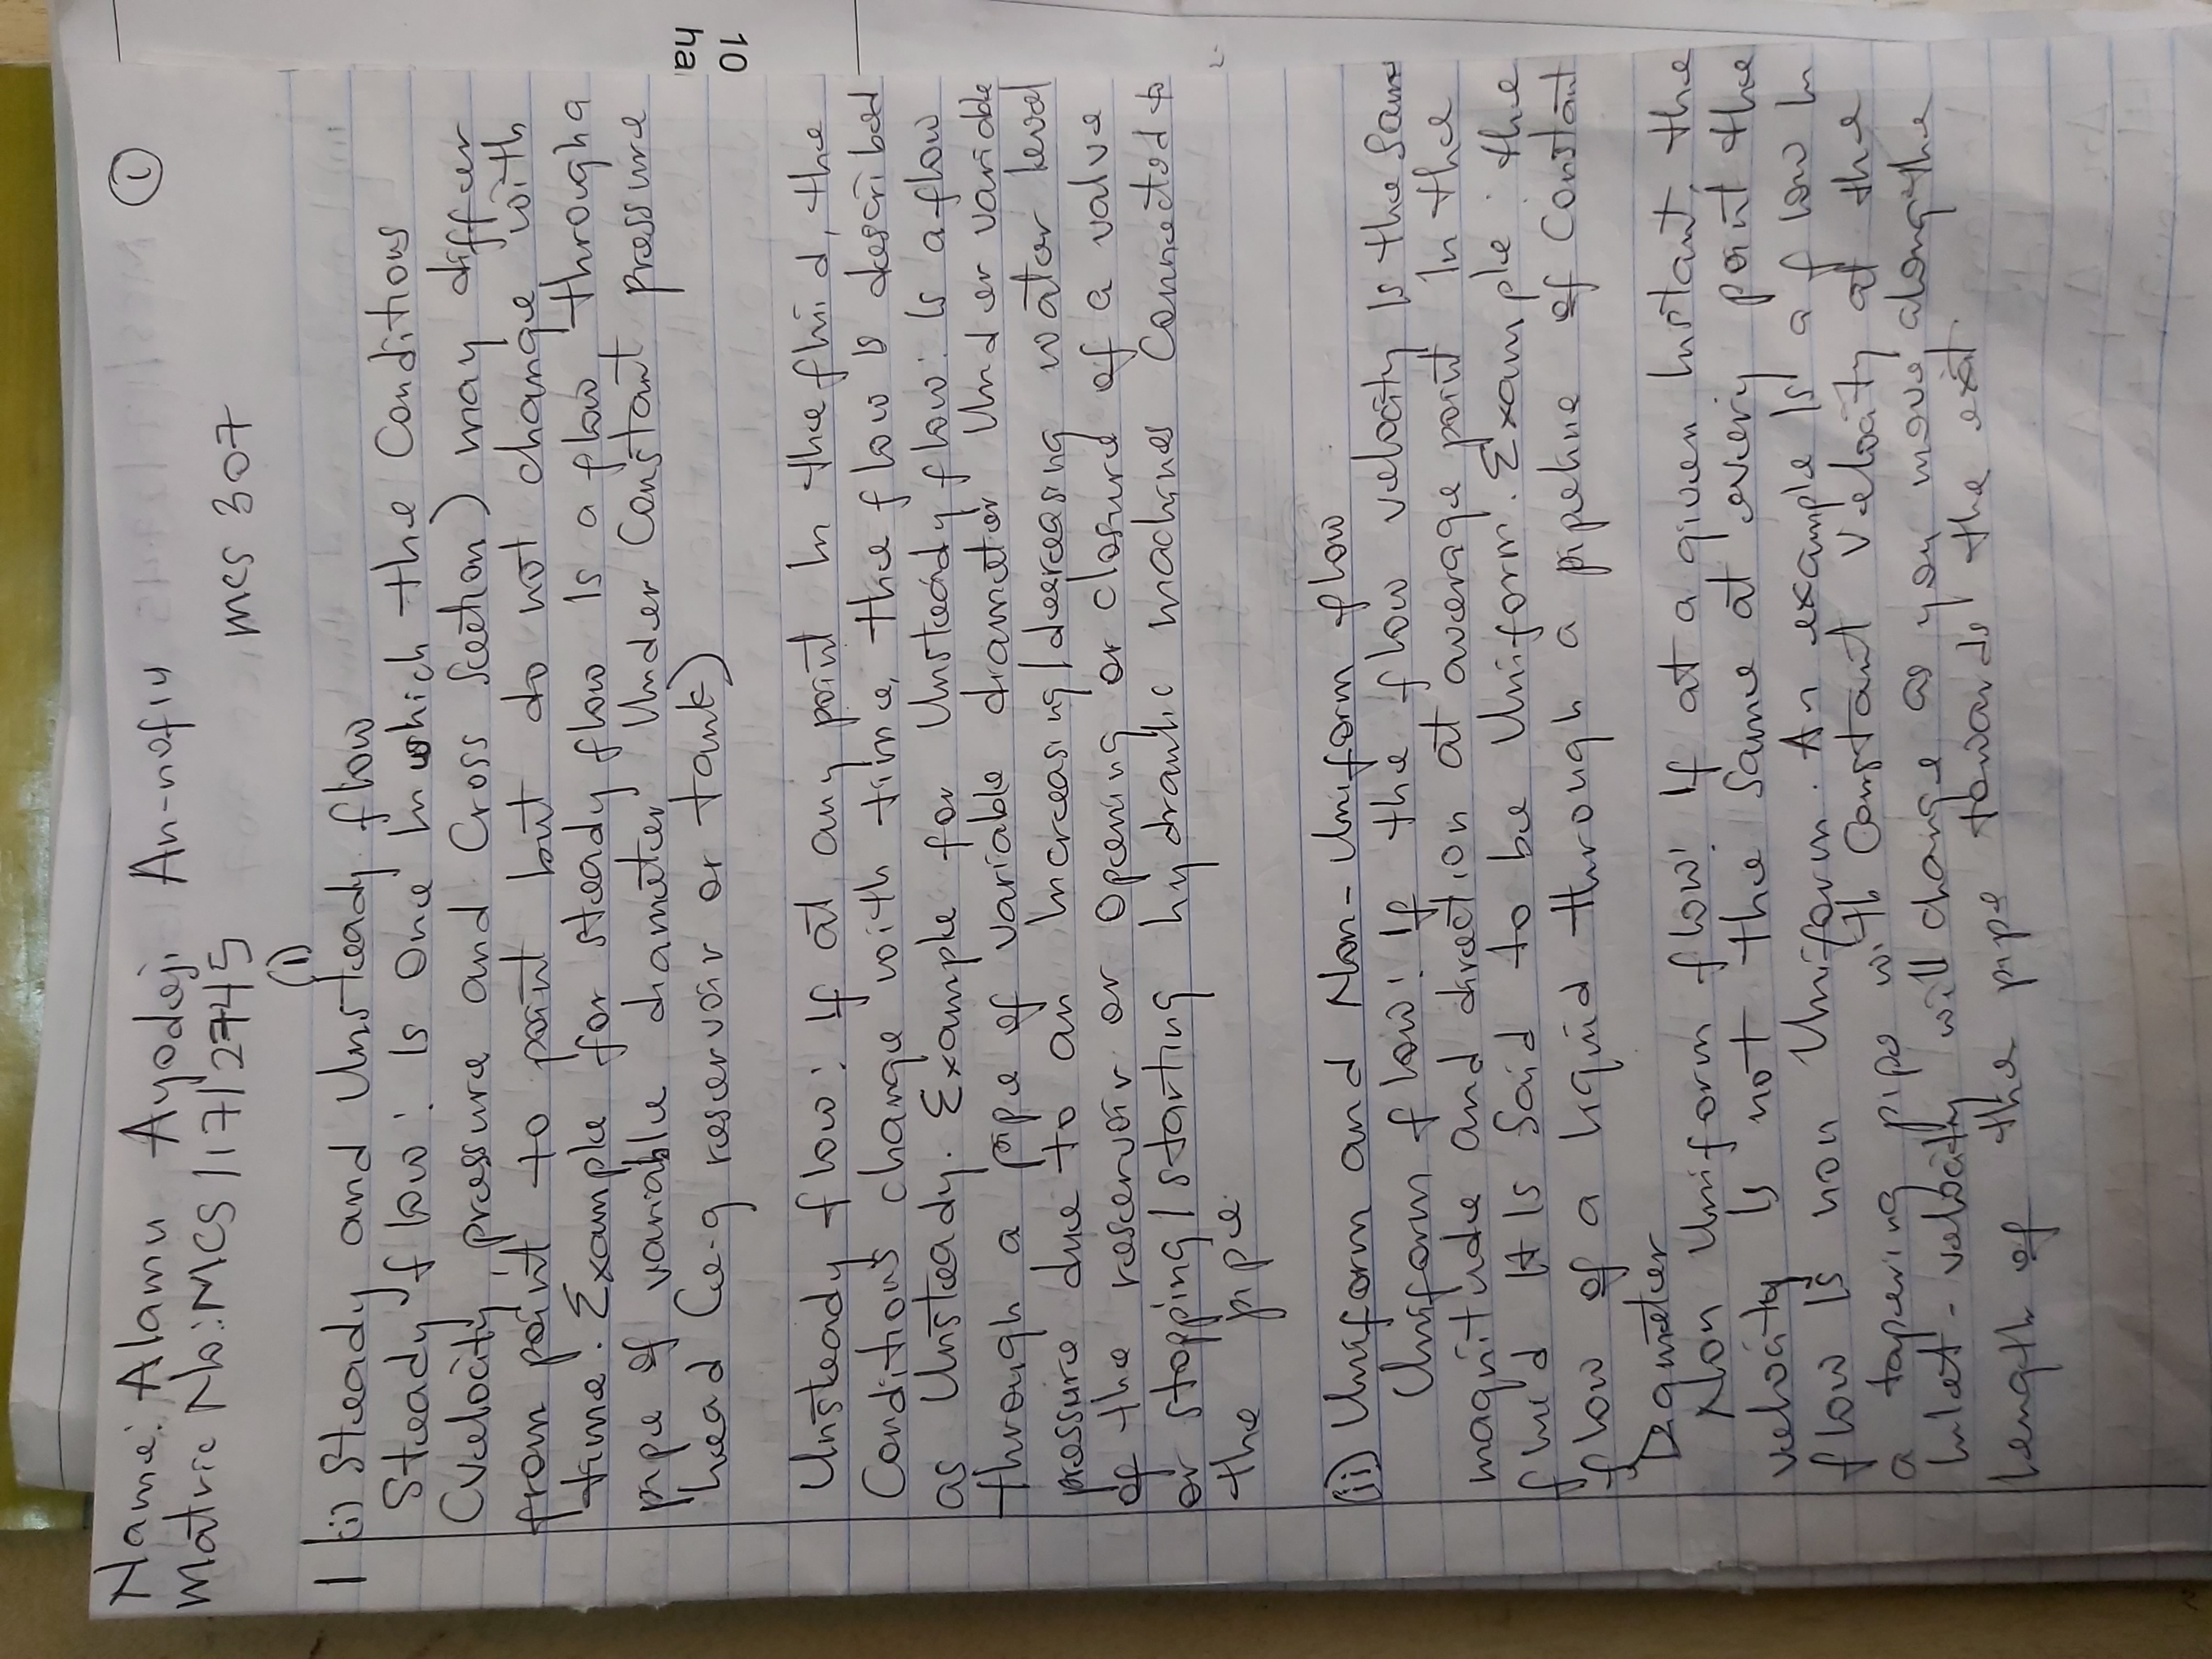 Name: Alamu Ayodeji An-nofiu
1
Matric No: MCS/17/2745
mcs 307
(1)
1 (i) Steady and Unsteady flow
Steady flow: Is One In which the Conditions
(velocity, pressure and Cross Section) may differ
from point to point but do not change with
time. Example for steady flow Is a flow through a
pipe of variable diameter Under Constant pressure
head (e-g reservoir or tank)
Unsteady flow: If at any point In the fluid, the
Conditions change with time, the flow Is described
as Unsteady. Example for Unsteady flow: Is a flow
through a pipe of variable diameter Under variable
pressure due to an Increasing/decreasing water level
of the reservoir or Opening or closure of a valve
or stopping/starting hydraulic machines Connected to
the pipe.
(ii) Uniform and Non-Uniform flow
Uniform flow: If the flow velocity Is the Same
magnitude and direction at average point In the
fluid It Is Said to be Uniform. Example: the
flow of a liquid through a pipeline of Constant
Diameter
Non Uniform flow: If at a given Instant, the
velocity Is not the Same at every point the
flow Is non Uniform. An example Is a flow In
a tapering pipe with Constant Velocity at the
Inlet - velocity will change as you move along the
length of the pipe towards the exit.
ha
10